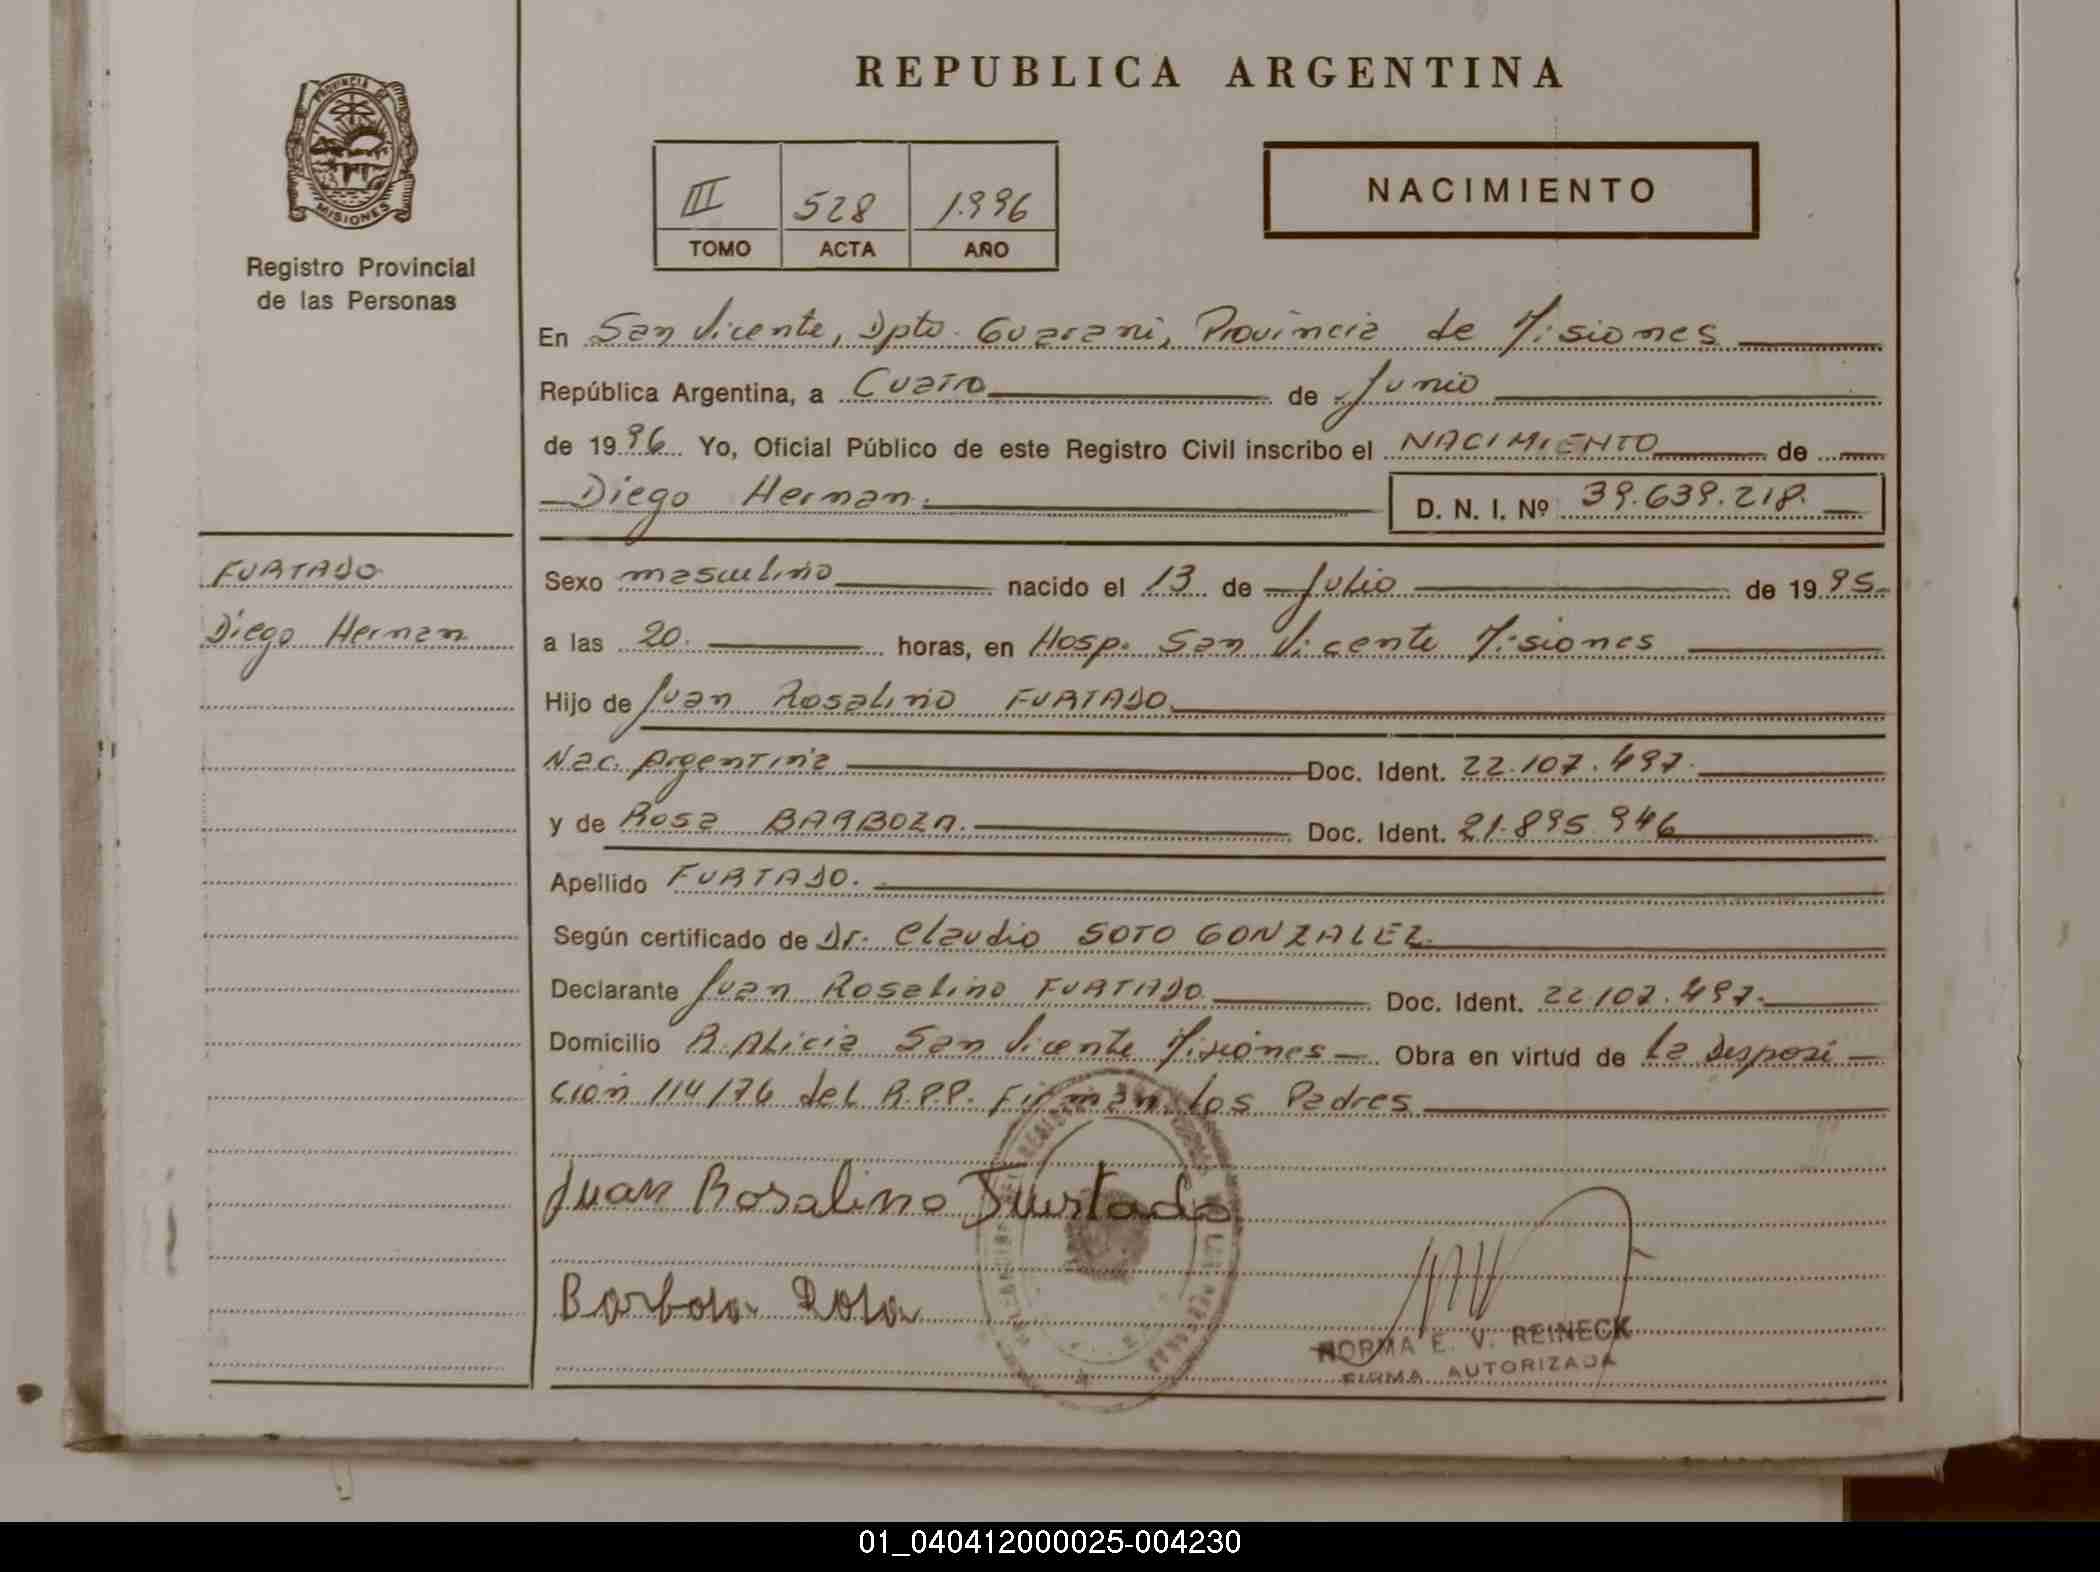 PROVINCIA DE
MISIONES
Registro Provincial
de las Personas
FURTADO
Diego Hernan
REPUBLICA ARGENTINA
III 528 1.996
TOMO ACTA AÑO
NACIMIENTO
En San Vicente, Dpto. Guarani, Provincia de Misiones
República Argentina, a Cuatro de Junio
de 1996 Yo, Oficial Público de este Registro Civil inscribo el NACIMIENTO de
Diego Hernan. D. N. I. Nº 39.639.218.
Sexo masculino nacido el 13 de Julio de 1995.
a las 20. horas, en Hosp. San Vicente Misiones
Hijo de Juan Rosalino FURTADO.
Nac. Argentina Doc. Ident. 22.107.497.
y de Rosa BARBOZA. Doc. Ident. 21.895.946
Apellido FURTADO.
Según certificado de Dr. Claudio SOTO GONZALEZ.
Declarante Juan Rosalino FURTADO Doc. Ident. 22.107.497.
Domicilio R. Alicia San Vicente Misiones — Obra en virtud de la Disposi—
ción 114/76 del R.P.P. Firman los Padres
Juan Rosalino Furtado
Barbosa Rosa
NORMA E. V. REINECK
FIRMA AUTORIZADA
01_040412000025-004230